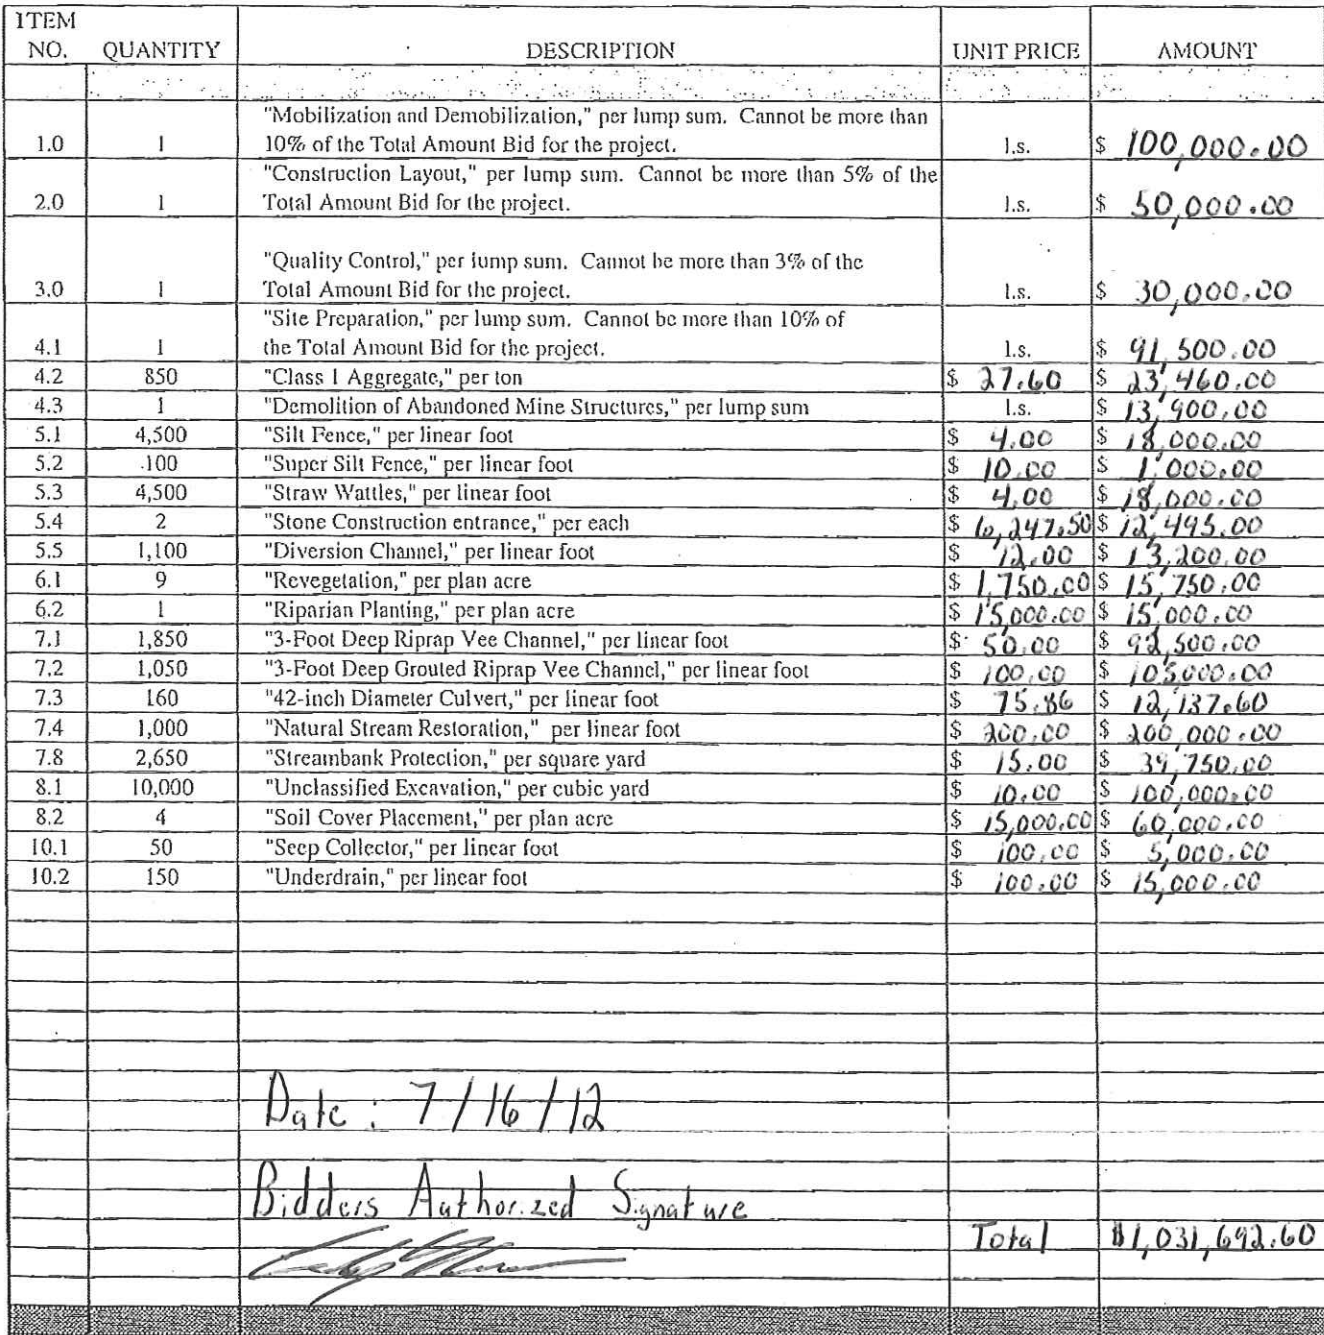 ITEM
NO. QUANTITY DESCRIPTION UNIT PRICE AMOUNT
"Mobilization and Demobilization," per lump sum. Cannot be more than
1.0 1 10% of the Total Amount Bid for the project. l.s. $ 100,000.00
"Construction Layout," per lump sum. Cannot be more than 5% of the
2.0 1 Total Amount Bid for the project. l.s. $ 50,000.00
"Quality Control," per lump sum. Cannot be more than 3% of the
3.0 1 Total Amount Bid for the project. l.s. $ 30,000.00
"Site Preparation," per lump sum. Cannot be more than 10% of
4.1 1 the Total Amount Bid for the project. l.s. $ 91,500.00
4.2 850 "Class 1 Aggregate," per ton $ 27.60 $ 23,460.00
4.3 1 "Demolition of Abandoned Mine Structures," per lump sum l.s. $ 13,900.00
5.1 4,500 "Silt Fence," per linear foot $ 4.00 $ 18,000.00
5.2 100 "Super Silt Fence," per linear foot $ 10.00 $ 1,000.00
5.3 4,500 "Straw Wattles," per linear foot $ 4.00 $ 18,000.00
5.4 2 "Stone Construction entrance," per each $ 6,247.50 $ 12,495.00
5.5 1,100 "Diversion Channel," per linear foot $ 12.00 $ 13,200.00
6.1 9 "Revegetation," per plan acre $ 1,750.00 $ 15,750.00
6.2 1 "Riparian Planting," per plan acre $ 15,000.00 $ 15,000.00
7.1 1,850 "3-Foot Deep Riprap Vee Channel," per linear foot $ 50.00 $ 92,500.00
7.2 1,050 "3-Foot Deep Grouted Riprap Vee Channel," per linear foot $ 100.00 $ 105,000.00
7.3 160 "42-inch Diameter Culvert," per linear foot $ 75.86 $ 12,137.60
7.4 1,000 "Natural Stream Restoration," per linear foot $ 200.00 $ 200,000.00
7.8 2,650 "Streambank Protection," per square yard $ 15.00 $ 39,750.00
8.1 10,000 "Unclassified Excavation," per cubic yard $ 10.00 $ 100,000.00
8.2 4 "Soil Cover Placement," per plan acre $ 15,000.00 $ 60,000.00
10.1 50 "Seep Collector," per linear foot $ 100.00 $ 5,000.00
10.2 150 "Underdrain," per linear foot $ 100.00 $ 15,000.00
Date: 7/16/12
Bidders Authorized Signature
Total $1,031,692.60